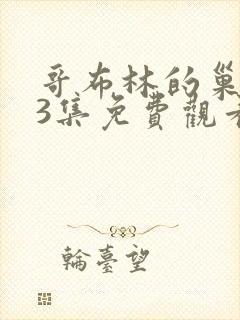 哥布林的巢
3集免費觀看
輪臺望